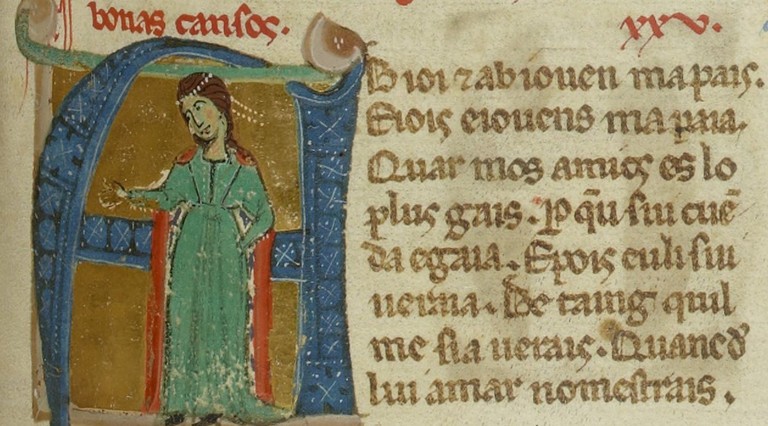 bonas cansos.
xxv.
A B ioi ⁊ab iouen mapais.
Eiois eiouens mapaia.
Quar mos amics es lo
plus gais. P̱ q̃u siu cuẽ
da egaia. Epois euli siu
ueraia. Be taing quil
me sia uerais. Quanc d̃
lui amar nomestrais.